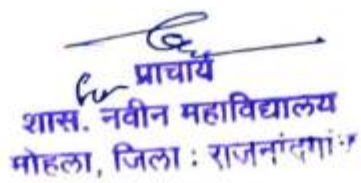 प्राचार्य
शास. नवीन महाविद्यालय
मोहला, जिला : राजनांदगांव